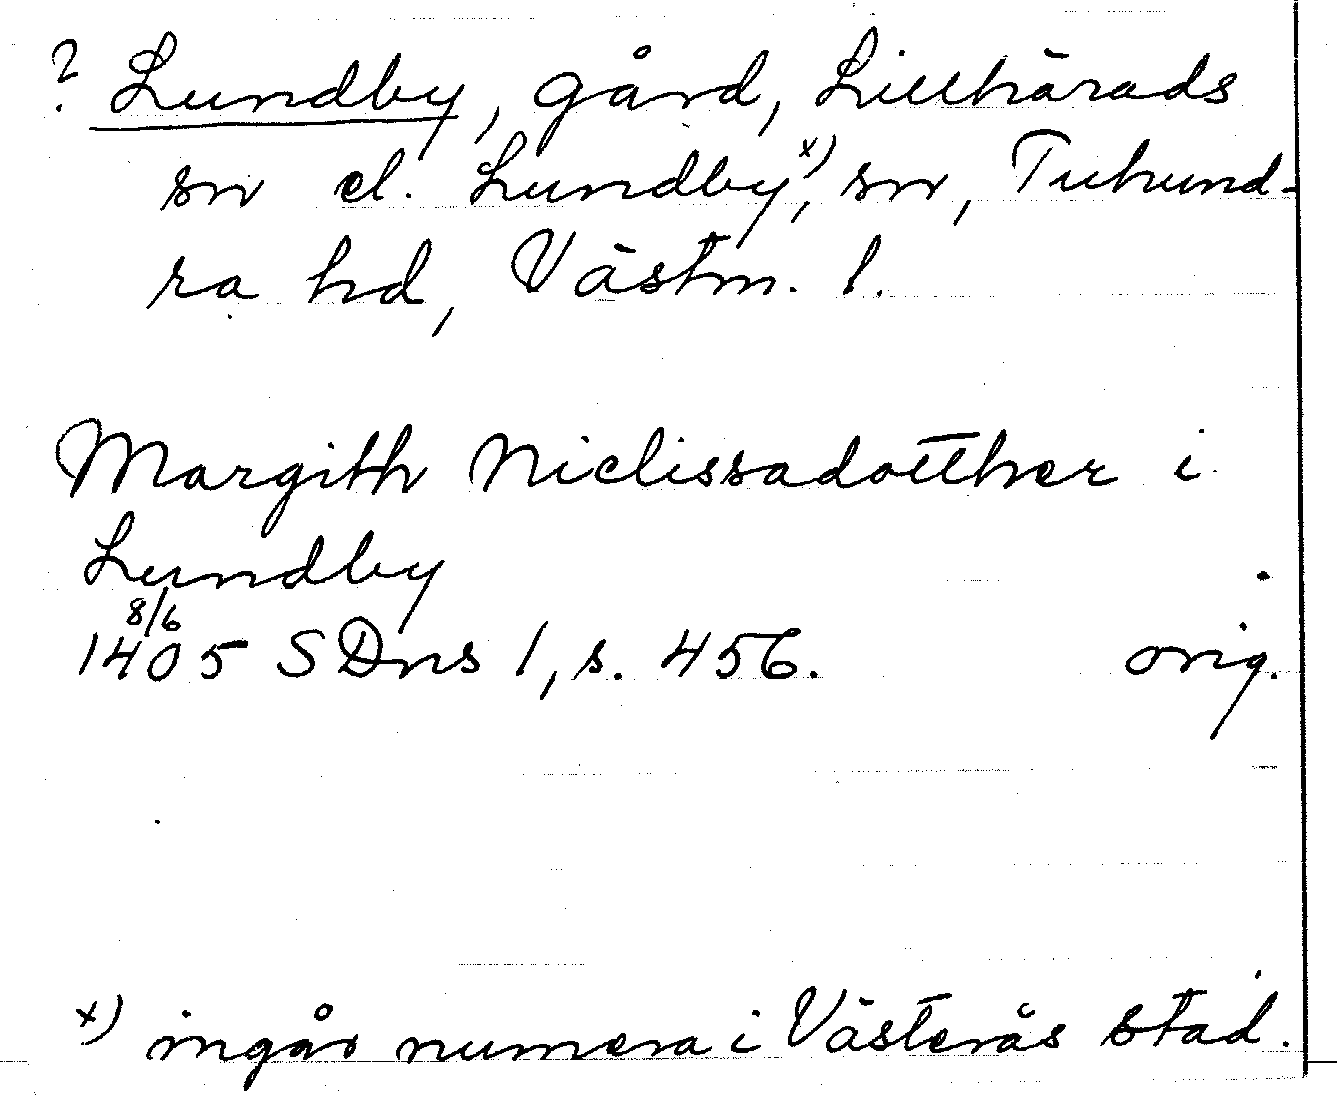 ? Lundby, gård, Lillhärads
sn el. Lundby,x) sn, Tuhund-
ra hd, Västm. l.
Margith Niclissadotther i
Lundby
8/6
1405 SDns 1, s. 456. orig.
x) ingår numera i Västerås stad.